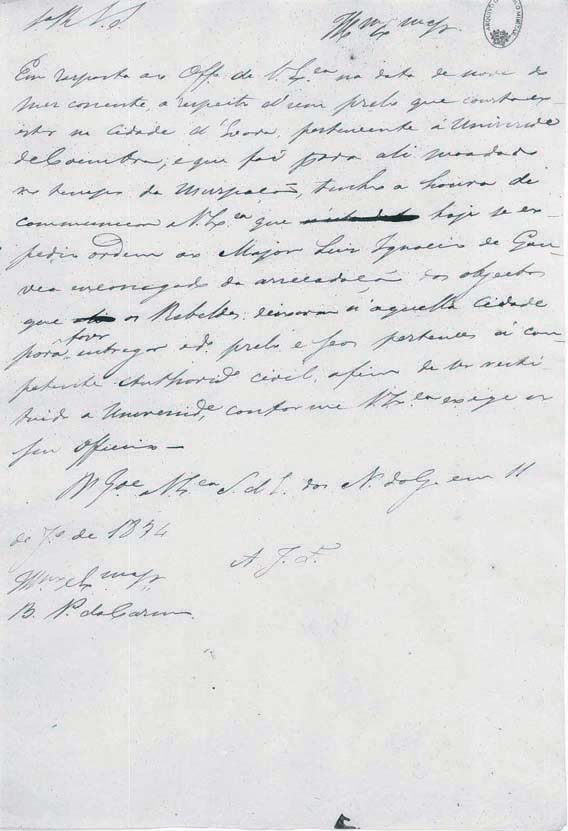 Illmo Exmo Snr
Em resposta ao Offo de V. Exca na data de nove do
mez corrente, a respeito d'um prelo que consta ex-
istir na Cidade d'Evora, pertencente á Universide
de Coimbra, e que foi para ali mandado
no tempo da Usurpação, tenho a honra de
communicar a V. Exca que hoje se ex-
pedio ordem ao Major Luis Ignacio de Gou-
vea encarregado da arrecadação dos objectos
que os Rebeldes deixaram n'aquella Cidade
para fazer entregar o do prelo e seos pertences á com-
petente Authoride civil, afim de ser resti-
tuido a Universide, conforme V. Exca exige no
seu Officio —
Ds Gde a V. Exca S. d'E. dos N. do G. em 11
de 7o de 1834
A. J. F.
Illmo e Exmo Snr
B. P. do Carmo